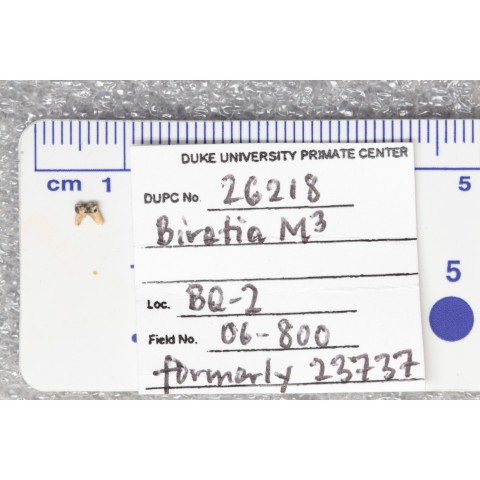 DUKE UNIVERSITY PRIMATE CENTER
cm 1 5
DUPC No. 26218
Biretia M³
5
Loc. BQ-2
Field No. 06-800
formerly 23737